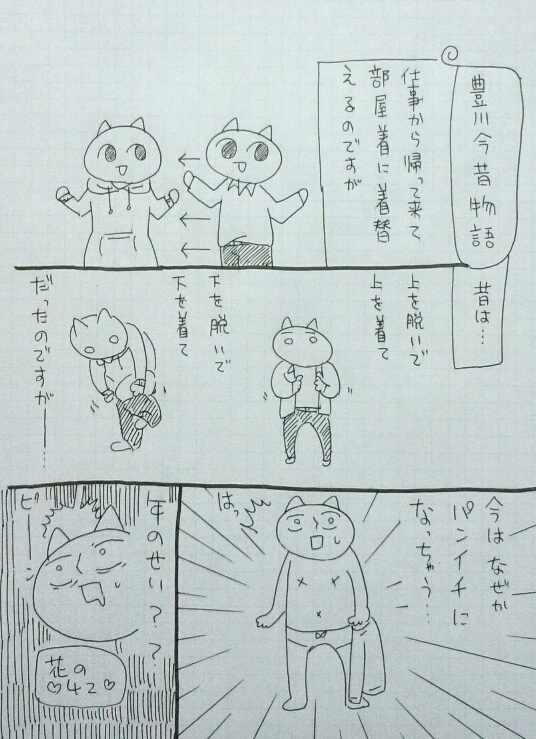 豊川今昔物語
仕事から帰って来て
部屋着に着替
えるのですが
昔は…
上を脱いで
上を着て
下を脱いで
下を着て
だったのですが――
今はなぜか
パンイチに
なっちゃう…
はっ
年のせい??
ビーン
花の
♡42♡